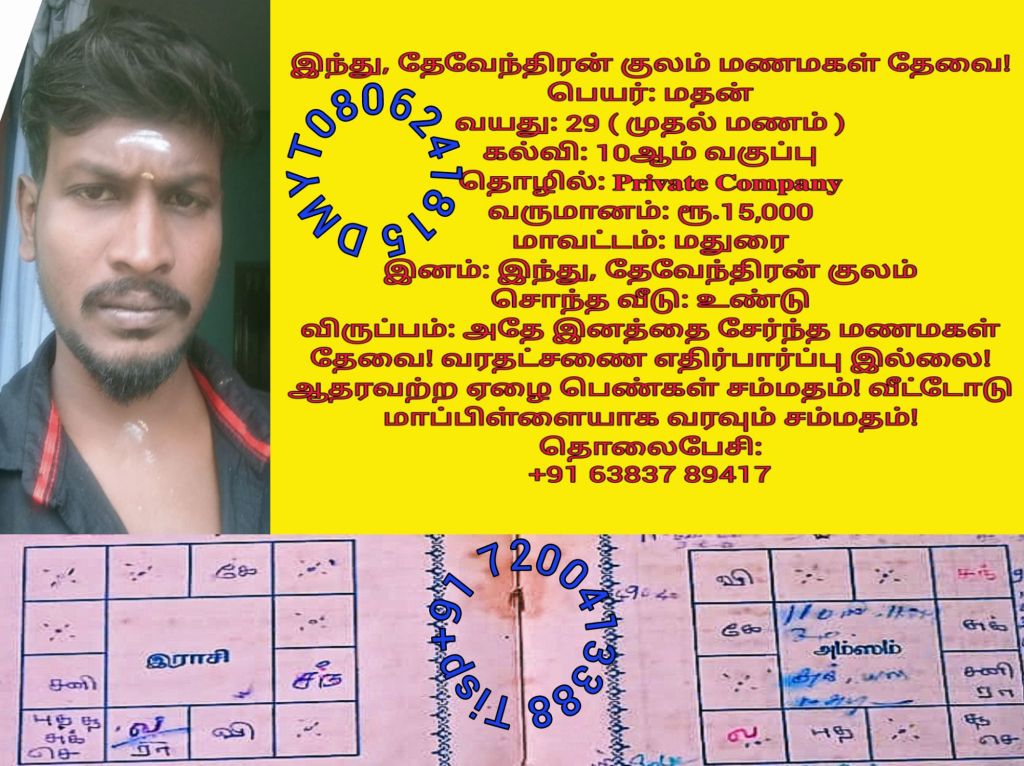 இந்து, தேவேந்திரன் குலம் மணமகள் தேவை!
பெயர்: மதன்
வயது: 29 ( முதல் மணம் )
கல்வி: 10ஆம் வகுப்பு
தொழில்: Private Company
வருமானம்: ரூ.15,000
மாவட்டம்: மதுரை
இனம்: இந்து, தேவேந்திரன் குலம்
சொந்த வீடு: உண்டு
விருப்பம்: அதே இனத்தை சேர்ந்த மணமகள்
தேவை! வரதட்சணை எதிர்பார்ப்பு இல்லை!
ஆதரவற்ற ஏழை பெண்கள் சம்மதம்! வீட்டோடு
மாப்பிள்ளையாக வரவும் சம்மதம்!
தொலைபேசி:
+91 63837 89417
DMYT0806241815
Tisp+91 7200413388
கே
இராசி
சனி
சந்
புத கு
சுக்
செ
ல
ரா
வி
வி
சந்
கே
சுக்
அம்ஸம்
சனி
ரா
ல
புத
கு
செ